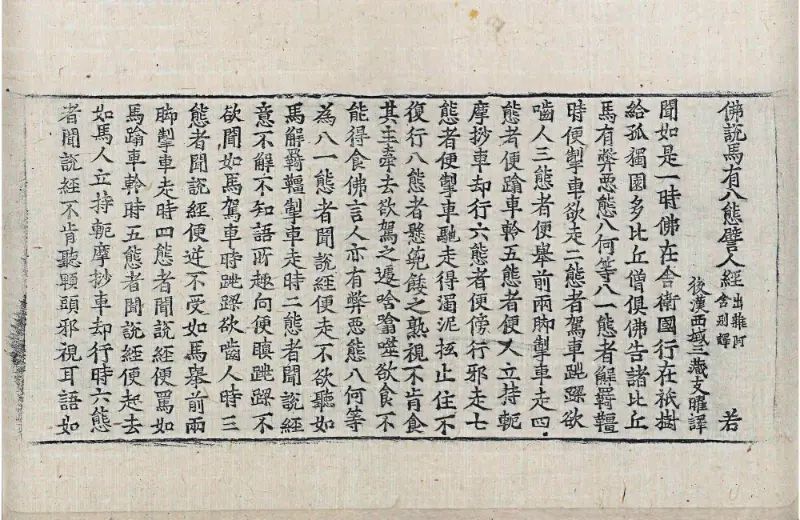 佛說馬有八態譬人經 出雜阿含別譯 若
後漢西域三藏支曜譯
聞如是一時佛在舍衛國行在祇樹
給孤獨園多比丘僧俱佛告諸比丘
馬有弊惡態八何等八一態者解羇韁
時便掣車欲走二態者駕車跳踝欲
嚙人三態者便舉前兩脚掣車走四
態者便踰車軨五態者便人立持軛
摩抄車却行六態者便傍行邪走七
態者便掣車馳走得濁泥抂止住不
復行八態者懸篼餧之熟視不肯食
其主牽去欲駕之遽唅噏噬欲食不
能得食佛言人亦有弊惡態八何等
為八一態者聞說經便走不欲聽如
馬解羇韁掣車走時二態者聞說經
意不解不知語所趣向便瞋跳踝不
欲聞如馬駕車時跳踝欲嚙人時三
態者聞說經便逆不受如馬舉前兩
脚掣車走時四態者聞說經便罵如
馬踰車軨時五態者聞說經便起去
如馬人立持軛摩抄車却行時六態
者聞說經不肯聽顊頭邪視耳語如